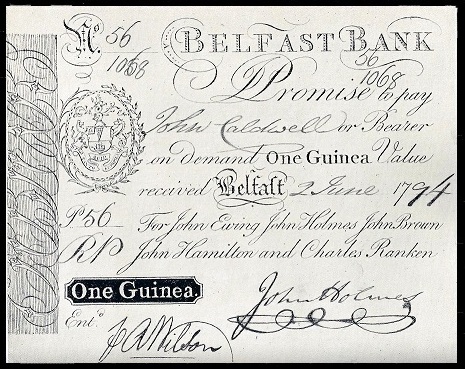 No. 56 BELFAST BANK
1068 56
1068
I Promise to pay
John Caldwell or Bearer
on demand One Guinea Value
received Belfast 2 June 1794
P 56 For John Ewing John Holmes John Brown
RP John Hamilton and Charles Ranken
One Guinea.
John Holmes
Entd
J A Wilson